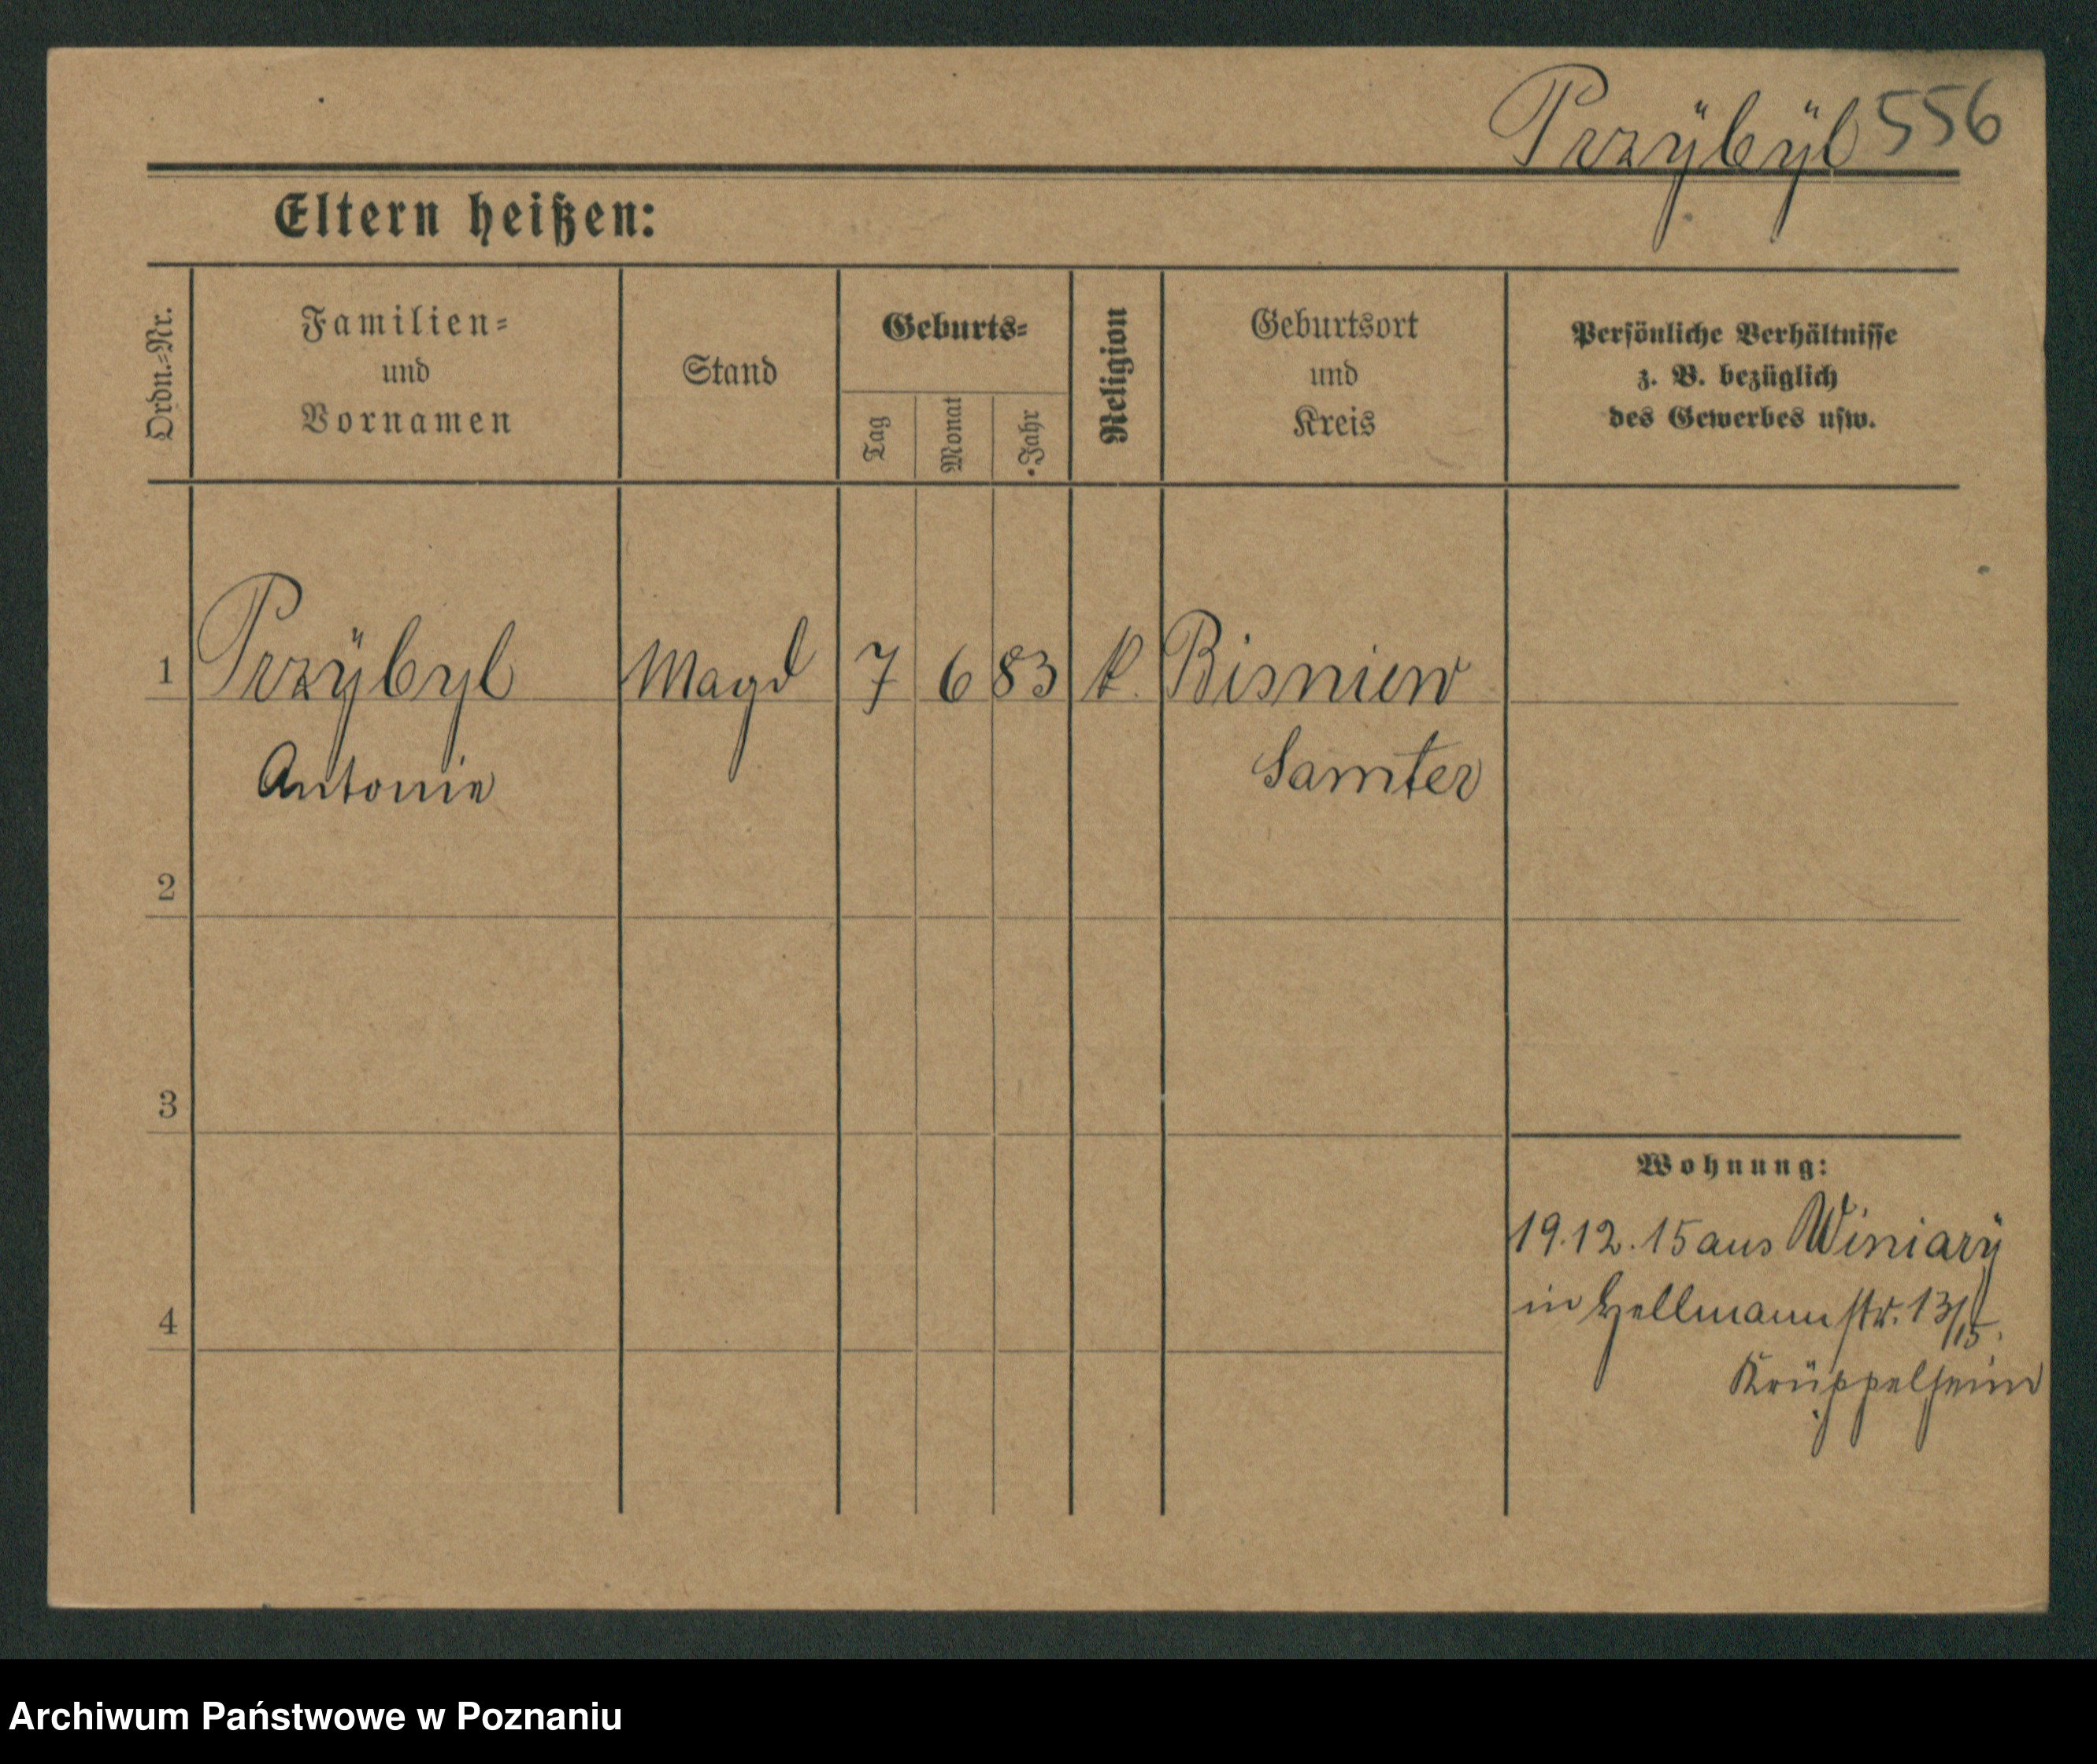 Przÿbÿl 556
Eltern heißen:
Ordn.-Nr.
Familien-
und
Vornamen
Stand
Geburts-
Tag
Monat
Jahr
Religion
Geburtsort
und
Kreis
Persönliche Verhältnisse
z. B. bezüglich
des Gewerbes usw.
1 Przÿbyl Magd 7 6 83 k. Bisniew
Antonie Samter
2
3
Wohnung:
19.12.15 aus Winiarÿ
in Hellmannstr. 13/15.
4
Krüppelheim
Archiwum Państwowe w Poznaniu